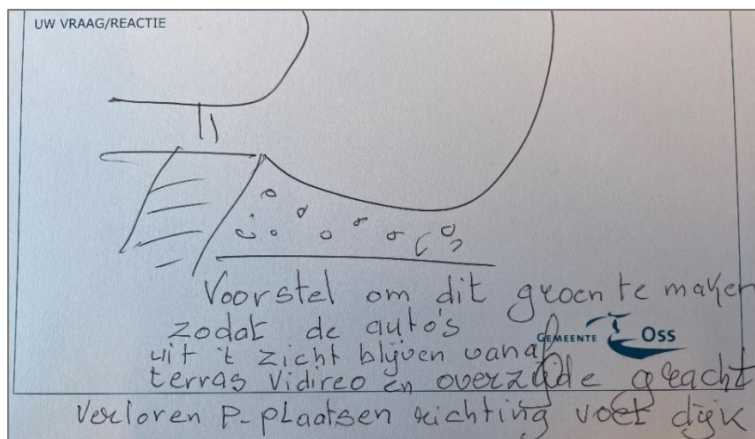 UW VRAAG/REACTIE
Voorstel om dit groen te maken
zodat de auto's
GEMEENTE Oss
uit 't zicht blijven vanaf
terras Vidireo en overzijde gracht
Verloren P-plaatsen richting voet dijk